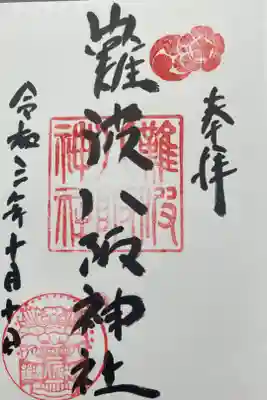 奉拝
難波八阪神社
難波八阪神社
令和三年十月十日